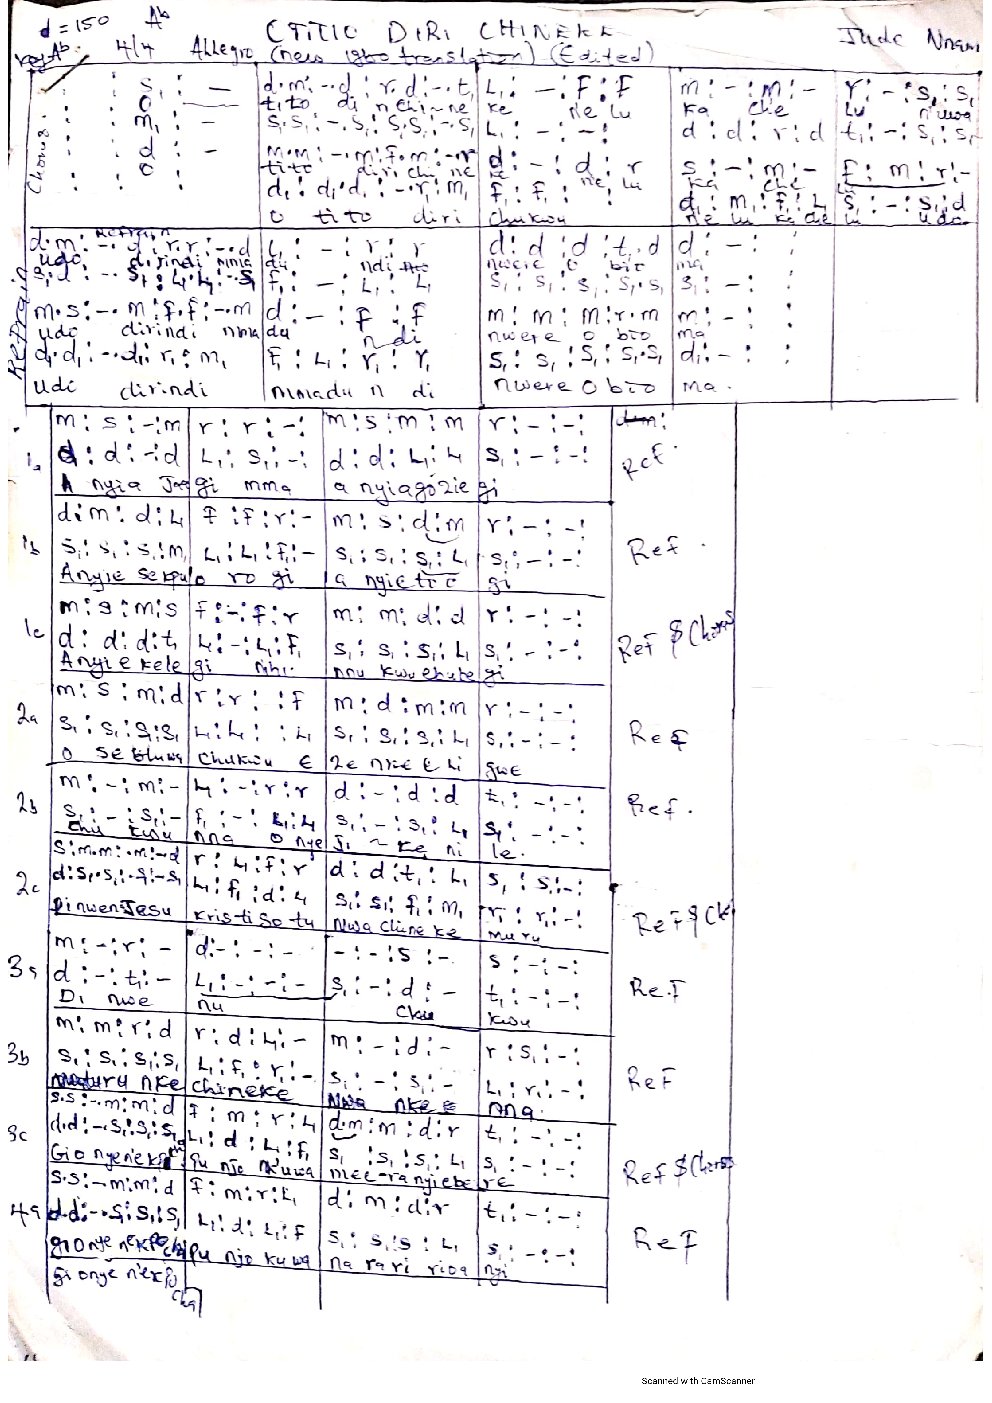 d = 150 Ab
CTITIO DIRI CHINEKE
Jude Nnam
key Ab. 4/4 Allegro (new igbo translation) (Edited)
Chorus.
: : s, : —
d.m : -.d : r.d : -.t,
L, : - . F : F
m : - : m : -
r : - : s, : s,
O
ti to di ri chi - ne
ke ne lu
ka che
lu n'uwa
: : m, : —
s,.s, : -.s, : s,.s, : -.s,
L, : - : - :
d : d : r : d
t, : - : s, : s,
: : d : -
m.m : -.m : f.m : -.r
d : - : d : r
s : - : m : -
f : m : r : -
O
ti to diri chi ne
ke ne lu
ka che
lu
d, : d,.d, : -.r, : m,
f, : f, : : L,
d, : m, : f, : L,
s, : - : s, : d
O ti to diri
Chukwu
ne lu ka che
lu udo
Refrain
Refrain
d.m : -.d : r.r : -.d
L, : - : r : r
d : d : d : t,.d
d : - : :
udo dirindi mma
du ndi
nwere o bio
ma
s,.d : -.s, : L,.L, : -.s,
f, : - : L, : L,
s, : s, : s, : s,.s,
s, : - : :
m.s : -.m : f.f : -.m
d : - : f : f
m : m : m : r.m
m : - : :
udo dirindi nma
du ndi
nwere o bio
ma
d,.d, : -.d, : r, : m,
f, : L, : r, : r,
s, : s, : s, : s,.s,
d, : - : :
Udo dirindi
mmadu n di
nwere O bio
ma.
1a
m : s : - : m
r : r : - :
m : s : m : m
r : - : - :
d : d : - : d
L, : s, : - :
d : d : L, : L,
s, : - : - :
Ref.
A nyia Jaa
gi mma
a nyiagozie
gi
1b
d : m : d : L,
f : f : r : -
m : s : d.m
r : - : - :
s, : s, : s, : m,
L, : L, : f, : -
s, : s, : s, : L,
s, : - : - :
Ref.
Anyie sekpu
lo ro gi
a nyieto
gi
1c
m : s : m : s
f : - : f : r
m : m : d : d
r : - : - :
d : d : d : t,
L, : - : L, : f,
s, : s, : s, : L,
s, : - : - :
Ref $ Chorus
Anyi e kele
gi
nnu kwu ebube
gi
2a
m : s : m : d
r : r : : f
m : d : m : m
r : - : - :
s, : s, : s, : s,
L, : L, : : L,
s, : s, : s, : L,
s, : - : - :
Ref
O se bluwa
Chukwu E
ze nke E li
gwe
2b
m : - : m : -
L, : - : r : r
d : - : d : d
t, : - : - :
s, : - : s, : -
f, : - : L, : L,
s, : - : s, : L,
s, : - : - :
Ref.
Chu kwu
nna O nye
ji - ke ni
le.
2c
s : m.m : -.m : - d
r : L, : f : r
d : d : t, : L,
s, : s, : - :
d : s,.s, : -.s, : - s,
L, : f, : d : L,
s, : s, : f, : m,
r, : r, : - :
Ref $ Cho
Dinwen Jesu
Kristi So tu
Nwa chineke
muru
3a
m : - : r : -
d : - : - : -
- : - : s : -
s : - : - :
d : - : t, : -
L, : - : - : -
s, : - : d : -
t, : - : - :
Ref
Di nwe
nu
Chu
kwu
3b
m : m : r : d
r : d : L, : -
m : - : d : -
r : s, : - :
s, : s, : s, : s,
L, : f, : r, : -
s, : - : s, : -
L, : r, : - :
Ref
nke
chineke
Nwa nke e
nna.
3c
s.s : -.m : m : d
f : m : r : L,
d.m : m : d : r
t, : - : - :
d.d : -.s, : s, : s,
L, : d : L, : f,
s, : s, : s, : L,
s, : - : - :
Ref $ Chorus
Gi o nyenekp
pu njo n'uwa
mee-ranyiebe
re
4a
s.s : -.m : m : d
f : m : r : L,
d : m : d : r
t, : - : - :
d.d : -.s, : s, : s,
L, : d : L, : f
s, : s, : s : L,
s, : - : - :
Ref
gi o nye n'ekpo cha
pu njo ku wa
na ra ri rioa
nyi
gi onye n'ekpu
cha
Scanned with CamScanner